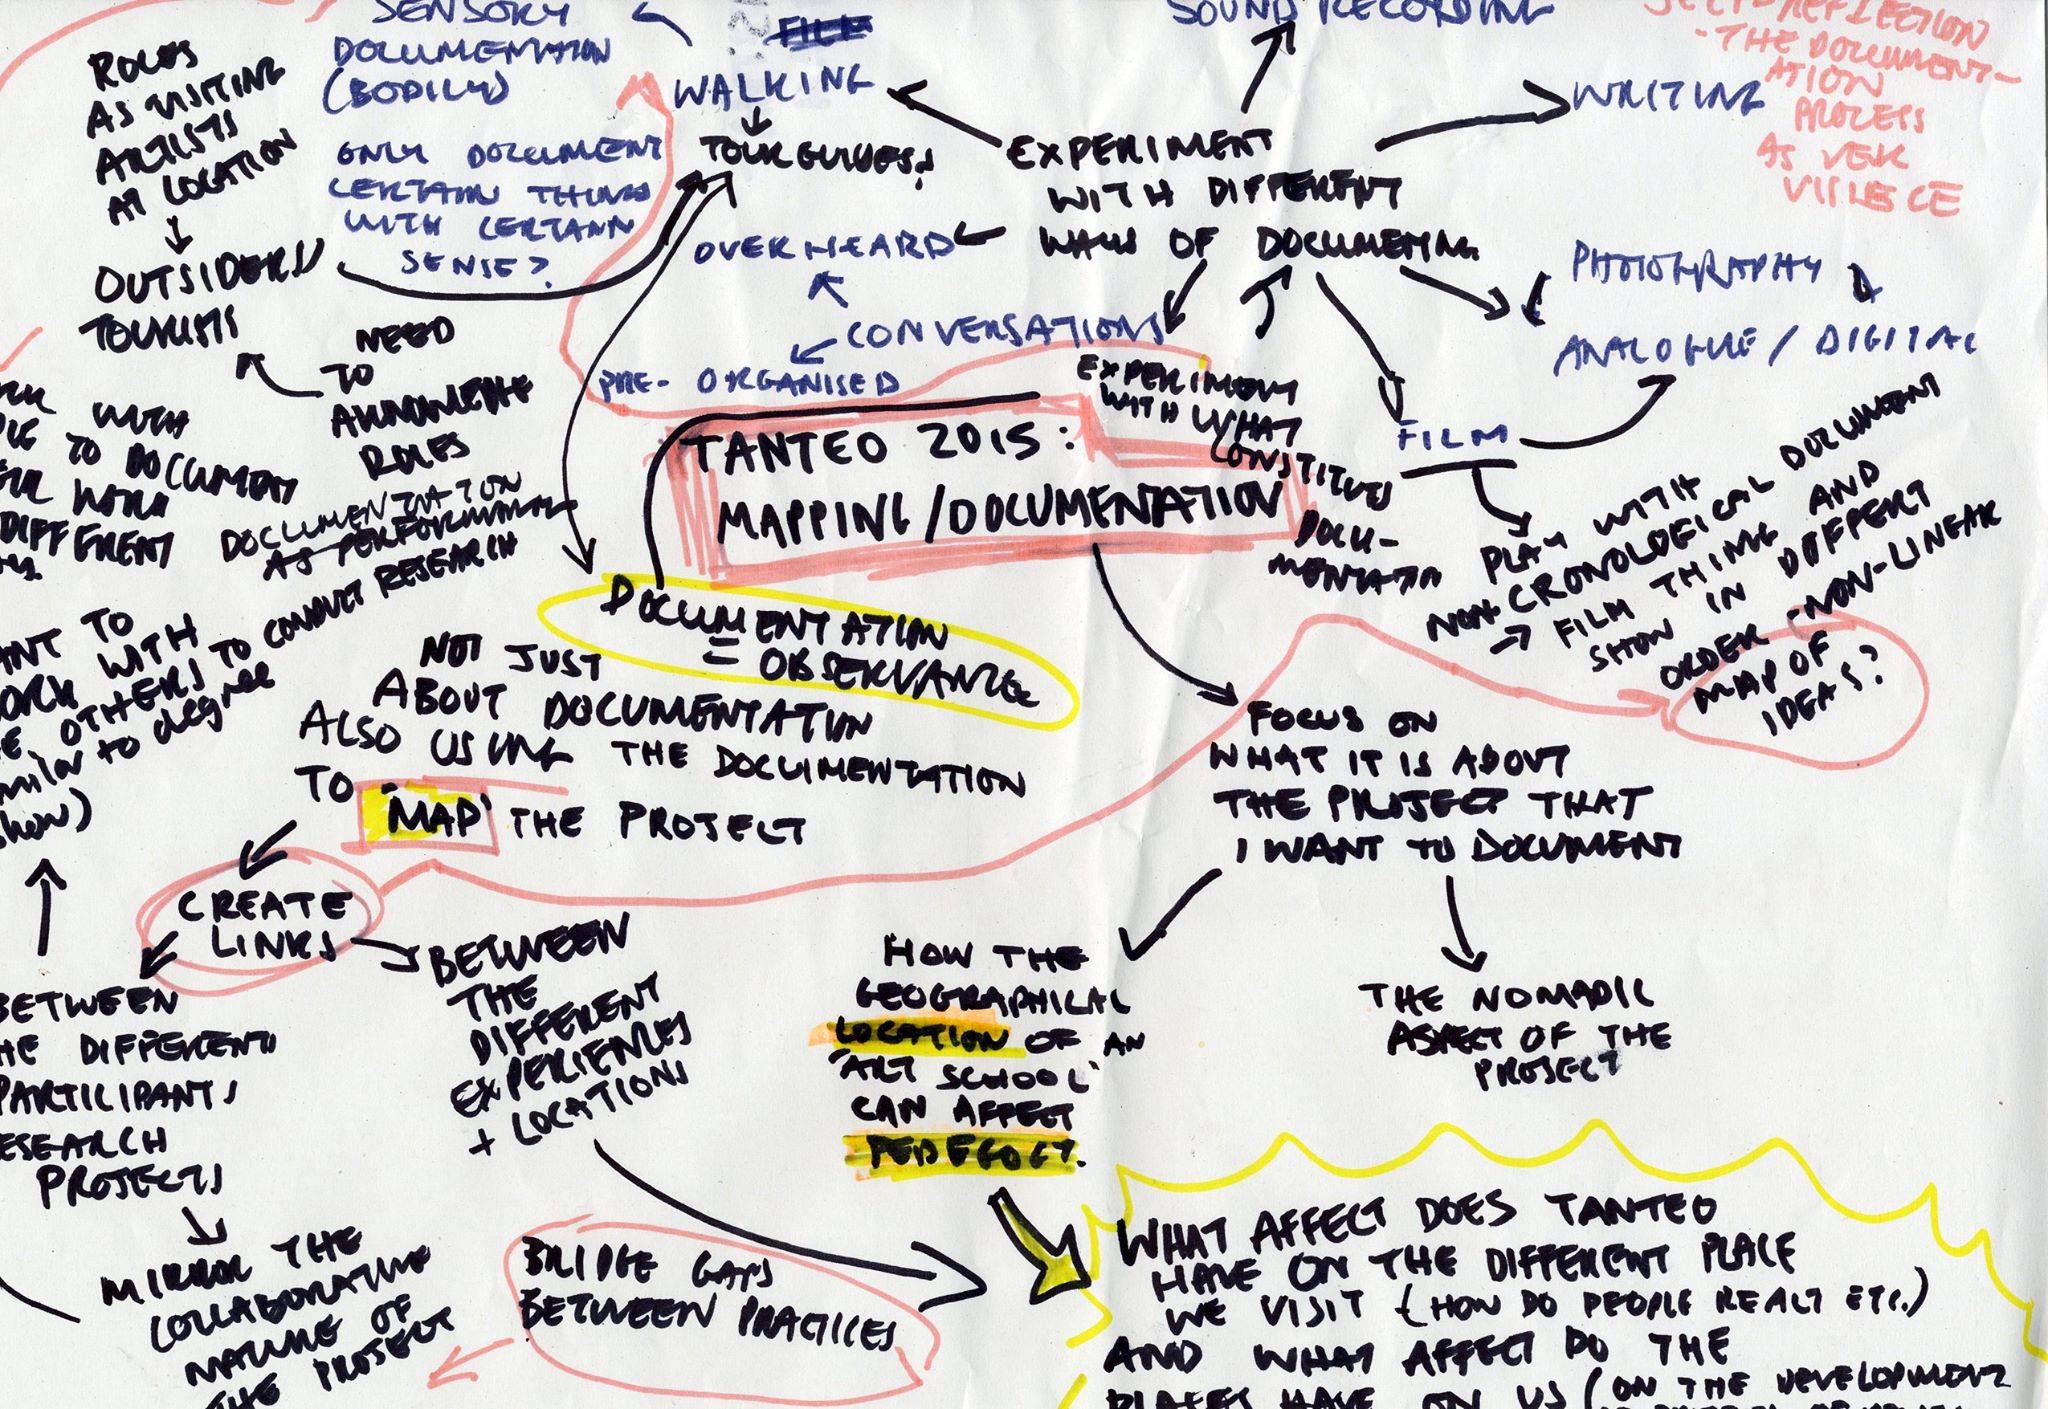 SENSORY
DOCUMENTATION
(BODILY)
ONLY DOCUMENT
CERTAIN THINGS
WITH CERTAIN
SENSE?
ROLES
AS VISITING
ARTISTS
AT LOCATION
OUTSIDERS/
TOURISTS
NEED
TO
ROLES
FILM
WALKING
TOURGUIDES?
SOUND RECORDING
WRITING
SELF-REFLECTION
- THE DOCUMENT-
ATION
PROCESS
AS
EXPERIMENT
WITH DIFFERENT
WAYS OF DOCUMENTING
OVERHEARD
CONVERSATIONS
PRE-ORGANISED
PHOTOGRAPHY
ANALOGUE / DIGITAL
FILM
EXPERIMENT
WITH WHAT
CONSTITUES
DOCU-
TANTEO 2015:
MAPPING/DOCUMENTATION
PLAY WITH
NON-CRONOLOGICAL DOCUMENT
→ FILM THING AND
SHOW IN DIFFERT
ORDER - NON-LINEAR
MAP OF
IDEAS?
WITH
TO DOCUMENT
WORK
DIFFERENT
DOCUMENTATION
AS PERFORMANCE
TO
WORK WITH
OTHERS TO CONDUCT RESEARCH
to degree
show)
DOCUMENTATION
= OBSERVANCE
NOT JUST
ABOUT DOCUMENTATION
ALSO USING THE DOCUMENTATION
TO 'MAP' THE PROJECT
CREATE
LINKS
BETWEEN
THE DIFFERENT
PARTICIPANTS
RESEARCH
PROJECTS
MIRROR THE
COLLABORATIVE
NATURE OF
THE PROJECT
BETWEEN
THE
DIFFERENT
EXPERIENCES
+ LOCATIONS
BRIDGE GAPS
BETWEEN PRACTICES
FOCUS ON
WHAT IT IS ABOUT
THE PROJECT THAT
I WANT TO DOCUMENT
HOW THE
GEOGRAPHICAL
LOCATION OF AN
'ART SCHOOL'
CAN AFFECT
PEDEGOGY.
THE NOMADIC
ASPECT OF THE
PROJECT
WHAT AFFECT DOES TANTEO
HAVE ON THE DIFFERENT PLACE
WE VISIT (HOW DO PEOPLE REACT ETC.)
AND WHAT AFFECT DO THE
PLACES HAVE ON US (ON THE DEVELOPMENT